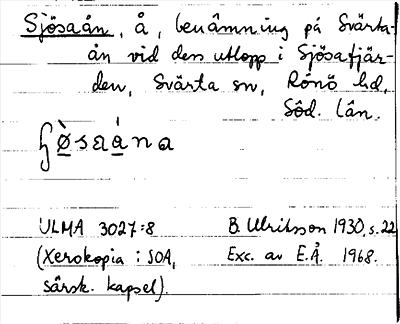 Sjösaån, å, benämning på Svärta-
ån vid dess utlopp i Sjösafjär-
den, Svärta sn, Rönö hd,
Söd. län.
ʃø̀saána
ULMA 3027:8 B. Ulriksson 1930, s. 22
(Xerokopia i SOA, Exc. av E.Å. 1968.
särsk. kapsel).